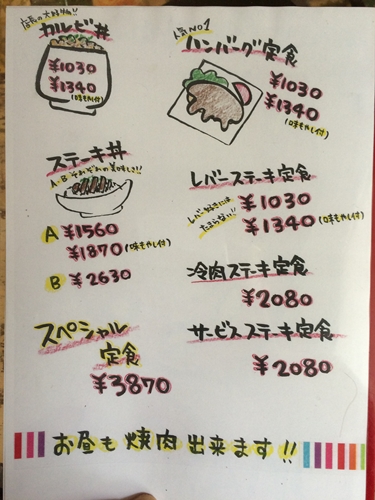 店長の大好物!!
カルビ丼
¥1030
¥1340
(味もやし付)
人気NO1
ハンバーグ定食
¥1030
¥1340
(味もやし付)
ステーキ丼
A・Bそれぞれの美味しさ!!
A ¥1560
¥1870(味もやし付)
B ¥2630
レバーステーキ定食
レバー好きには
たまらない!!
¥1030
¥1340(味もやし付)
冷肉ステーキ定食
¥2080
スペシャル
定食
¥3870
サービスステーキ定食
¥2080
お昼も焼肉出来ます!!